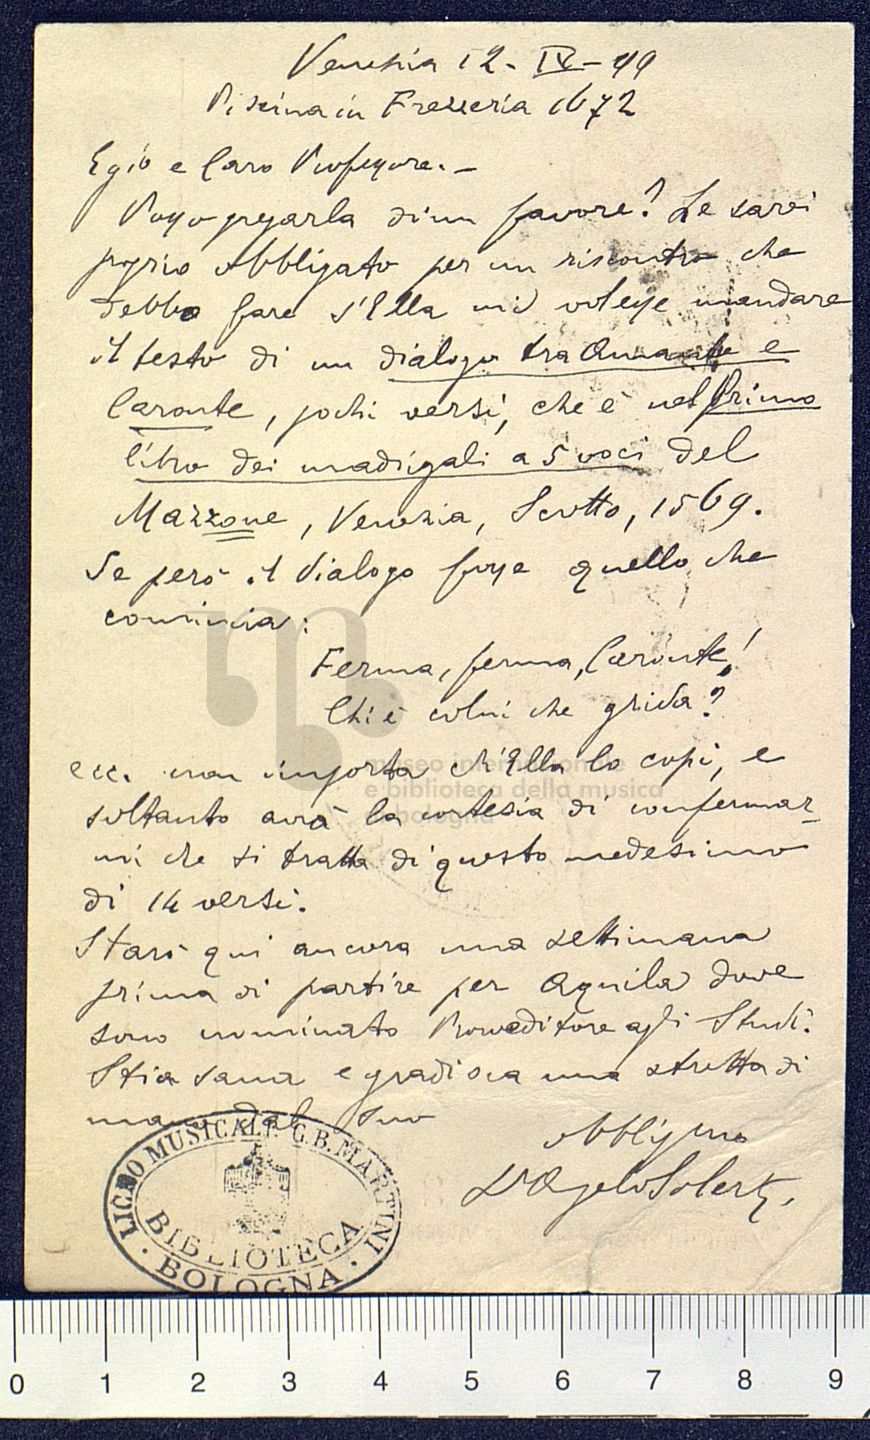 Venezia 12-IX-99
Piscina in Frezzeria 1672
Egio e Caro Professore. -
Posso pregarla di un favore? Le sarei
proprio obbligato per un riscontro che
debbo fare s'Ella mi volesse mandare
il testo di un dialogo tra Amante e
Caronte, pochi versi, che è nel Primo
libro dei madrigali a 5 voci del
Mazzone, Venezia, Scotto, 1569.
Se però il dialogo fosse quello che
comincia:
Ferma, ferma, Caronte!
Chi è colui che grida?
ecc. non importa ch'Ella lo copi, e
soltanto avrà la cortesia di confermar-
mi che si tratta di questo medesimo
di 14 versi.
Starò qui ancora una settimana
prima di partire per Aquila dove
sono nominato Provveditore agli Studî.
Stia sano e gradisca una stretta di
mano dal suo
obbligmo
Dr Angelo Solerti.
LICEO MUSICALE G.B. MARTINI
BIBLIOTECA
· BOLOGNA ·
museo internazionale
e biblioteca della musica
bologna
0 1 2 3 4 5 6 7 8 9